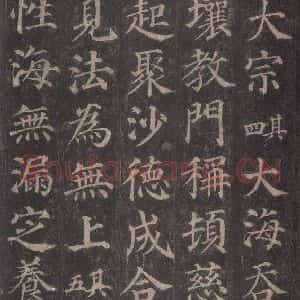 大宗其四大海吞
壤教門稱頓慈
起聚沙德成合
見法為無上其五
性海無漏定養